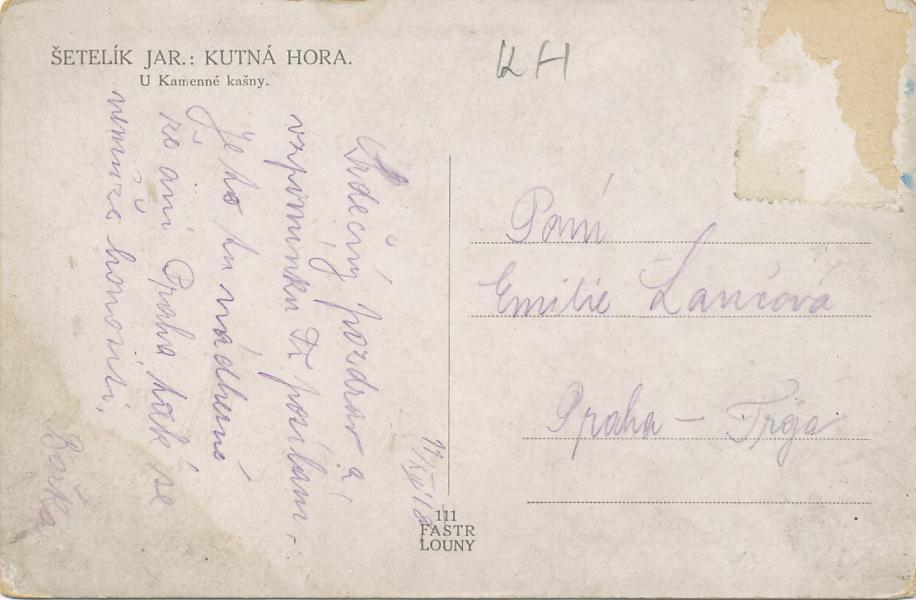 ŠETELÍK JAR.: KUTNÁ HORA.
U Kamenné kašny.
KH
Srdečný pozdrav a
vzpomínku Ti posílám.
Je to tu nádherné
že ani Praha tak se
nemůže honositi.
Boška
Paní
Emilie Lančová
Praha – Troja
111
FASTR
LOUNY